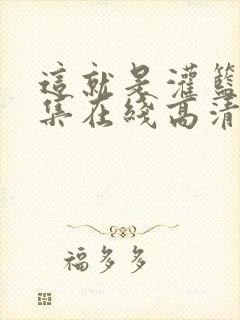 這就是灌籃
集在綫高清
福多多